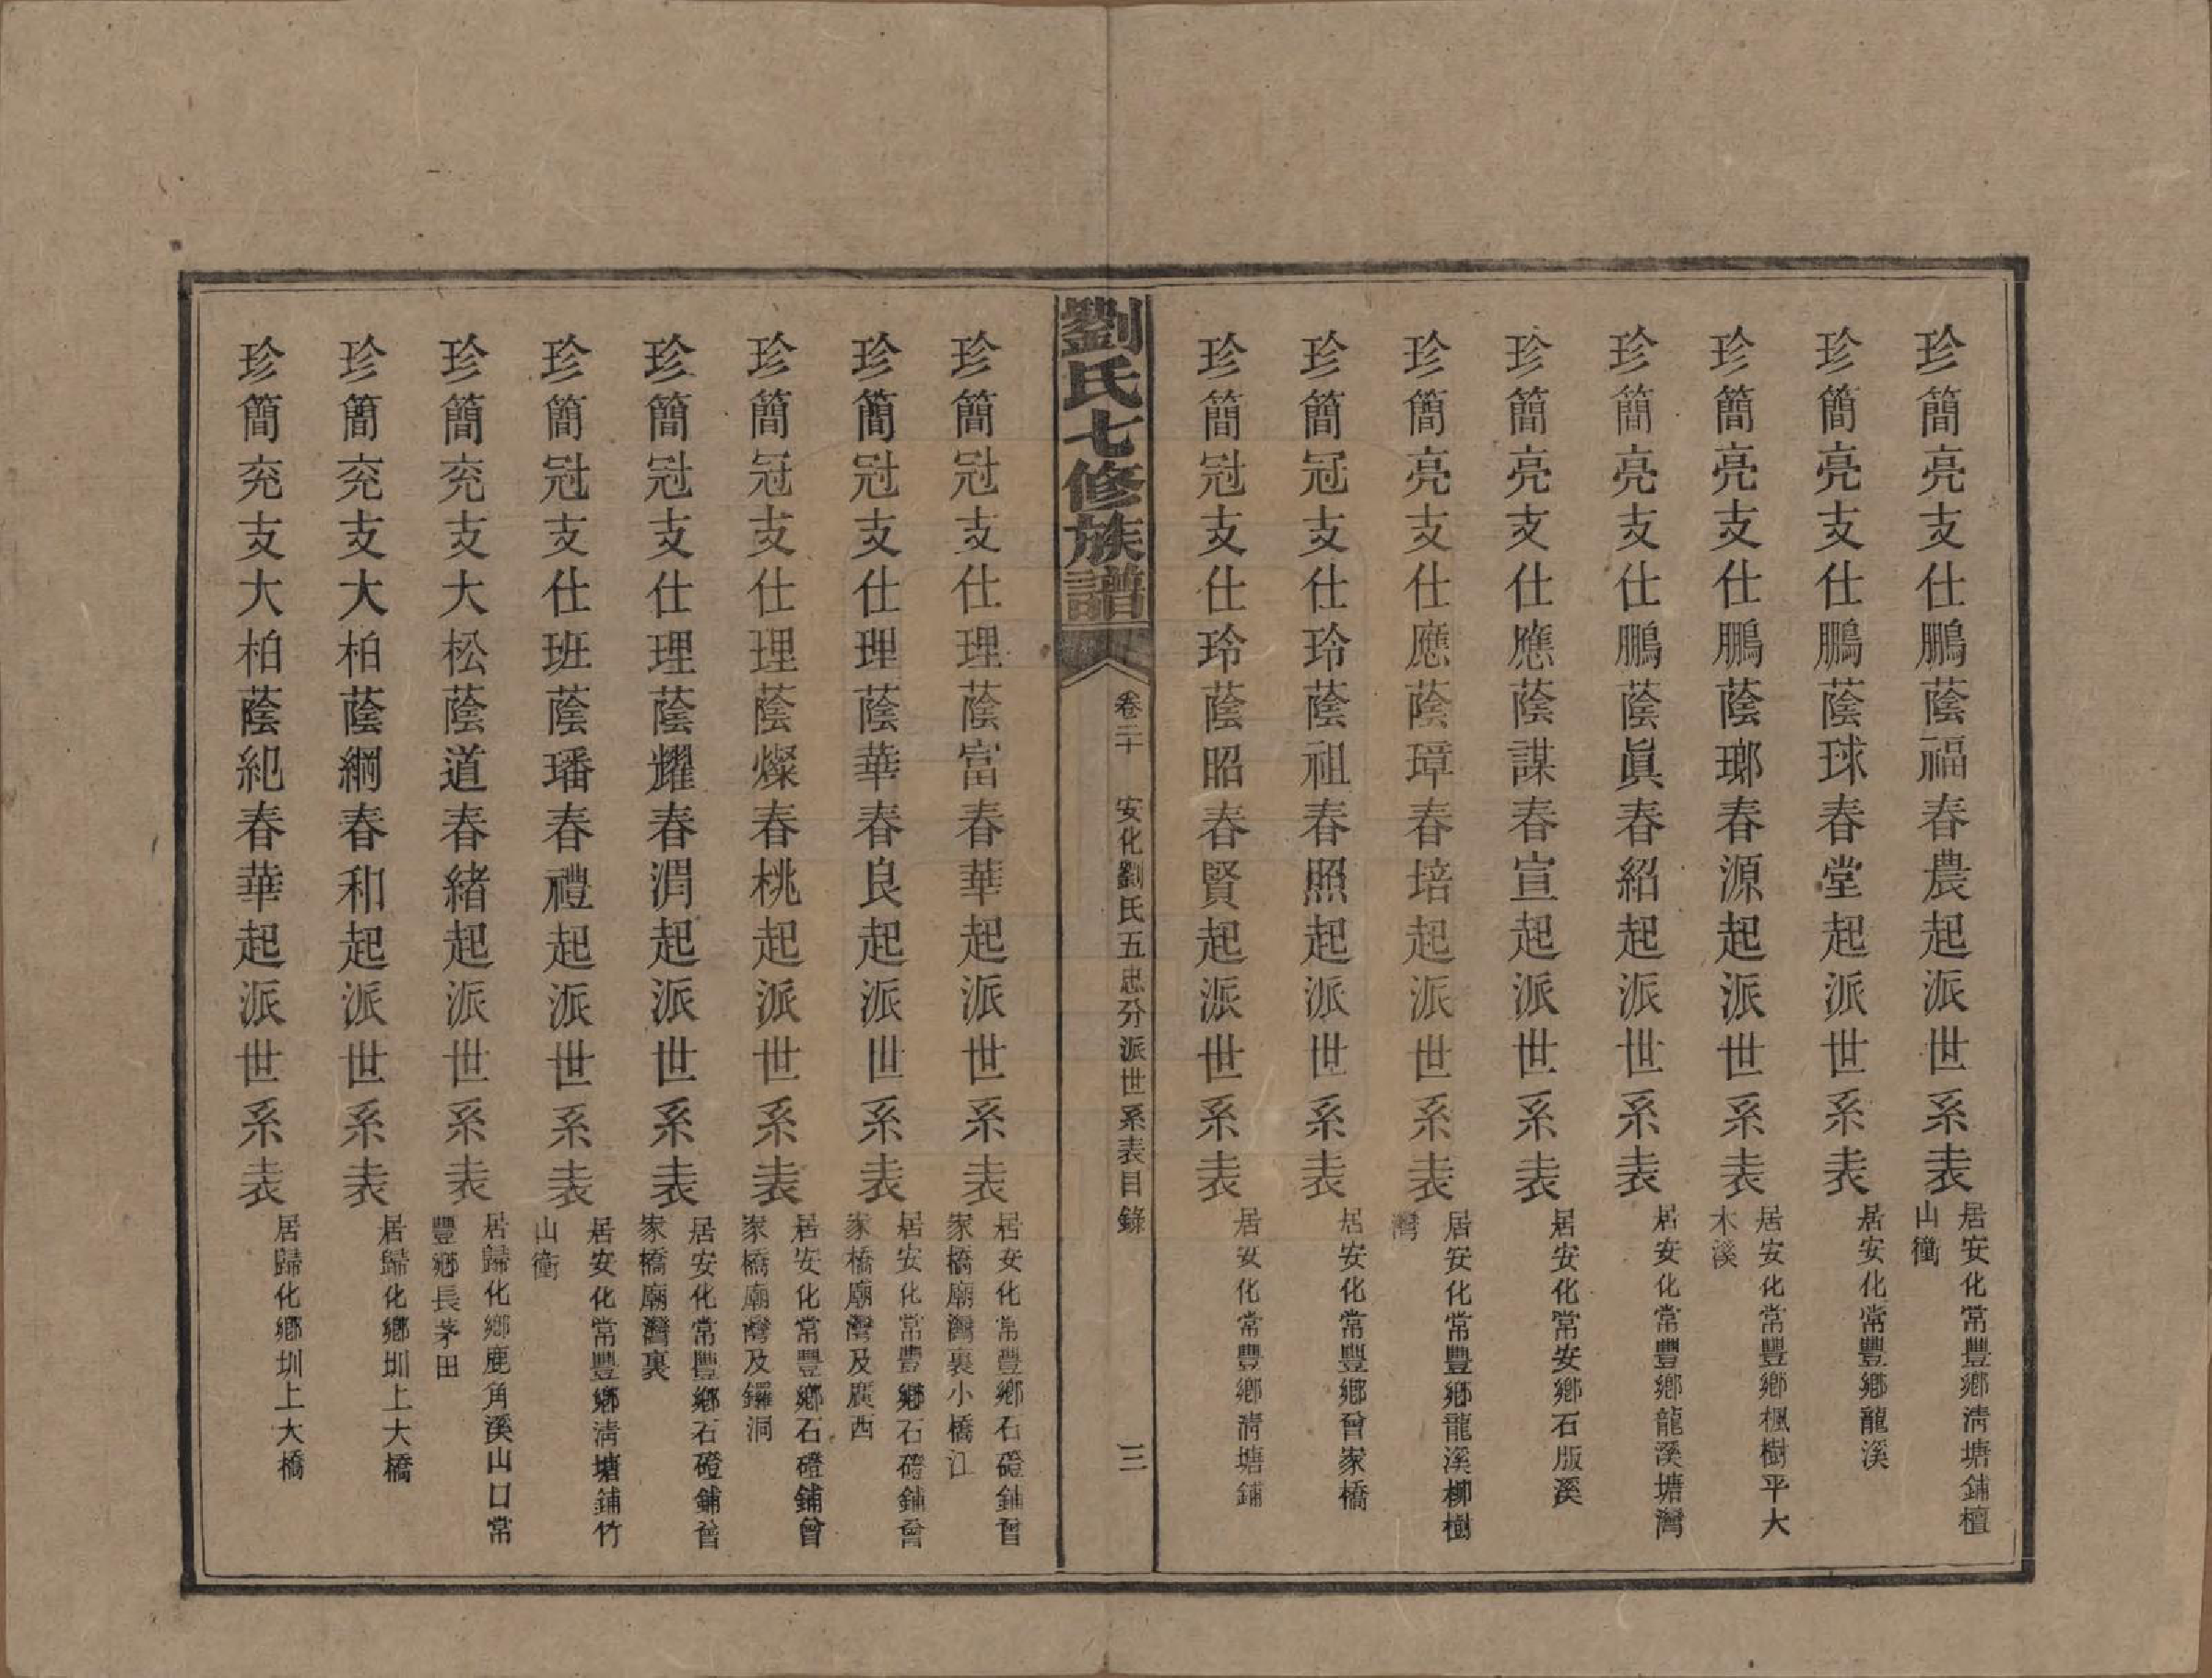 珍簡亮支仕鵬蔭福春農起派世系表 居安化常豐鄉淸塘鋪檀
山衝
珍簡亮支仕鵬蔭球春堂起派世系表 居安化常豐鄉龍溪
珍簡亮支仕鵬蔭瑯春源起派世系表 居安化常豐鄉楓樹平大
木溪
珍簡亮支仕鵬蔭眞春紹起派世系表 居安化常豐鄉龍溪塘灣
珍簡亮支仕應蔭謀春宣起派世系表 居安化常安鄉石版溪
珍簡亮支仕應蔭璋春培起派世系表 居安化常豐鄉龍溪柳樹
灣
珍簡冠支仕玲蔭祖春照起派世系表 居安化常豐鄉曾家橋
珍簡冠支仕玲蔭昭春賢起派世系表 居安化常豐鄉淸塘鋪
劉氏七修族譜 卷二十 安化劉氏五忠分派世系表目錄 三
珍簡冠支仕理蔭富春華起派世系表 居安化常豐鄉石磴鋪曾
家橋廟灣裏小橋江
珍簡冠支仕理蔭華春良起派世系表 居安化常豐鄉石磴鋪曾
家橋廟灣及廣西
珍簡冠支仕理蔭燦春桃起派世系表 居安化常豐鄉石磴鋪曾
家橋廟灣及鑼洞
珍簡冠支仕理蔭耀春渭起派世系表 居安化常豐鄉石磴鋪曾
家橋廟灣裏
珍簡冠支仕班蔭璠春禮起派世系表 居安化常豐鄉淸塘鋪竹
山衝
珍簡充支大松蔭道春緒起派世系表 居歸化鄉鹿角溪山口常
豐鄉長茅田
珍簡充支大柏蔭綱春和起派世系表 居歸化鄉圳上大橋
珍簡充支大柏蔭紀春華起派世系表 居歸化鄉圳上大橋